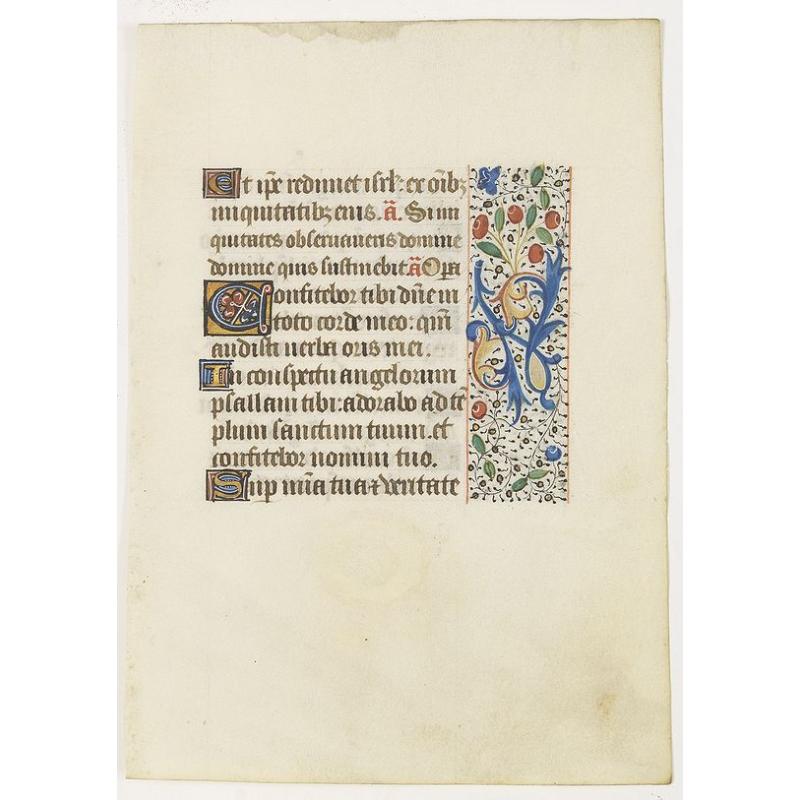 Et ip̄e redimet isrl̄: ex om̄ibꝫ
iniquitatibꝫ eius. ā. Si ini
quitates obseruaueris domine
domine quis sustinebit ā Opera
Confitebor tibi dn̄e in
toto corde meo: qm̄
audisti uerba oris mei.
In conspectu angelorum
psallam tibi: adorabo ad tē
plum sanctum tuum. et
confitebor nomini tuo.
Sup mīa tua ⁊ veritate